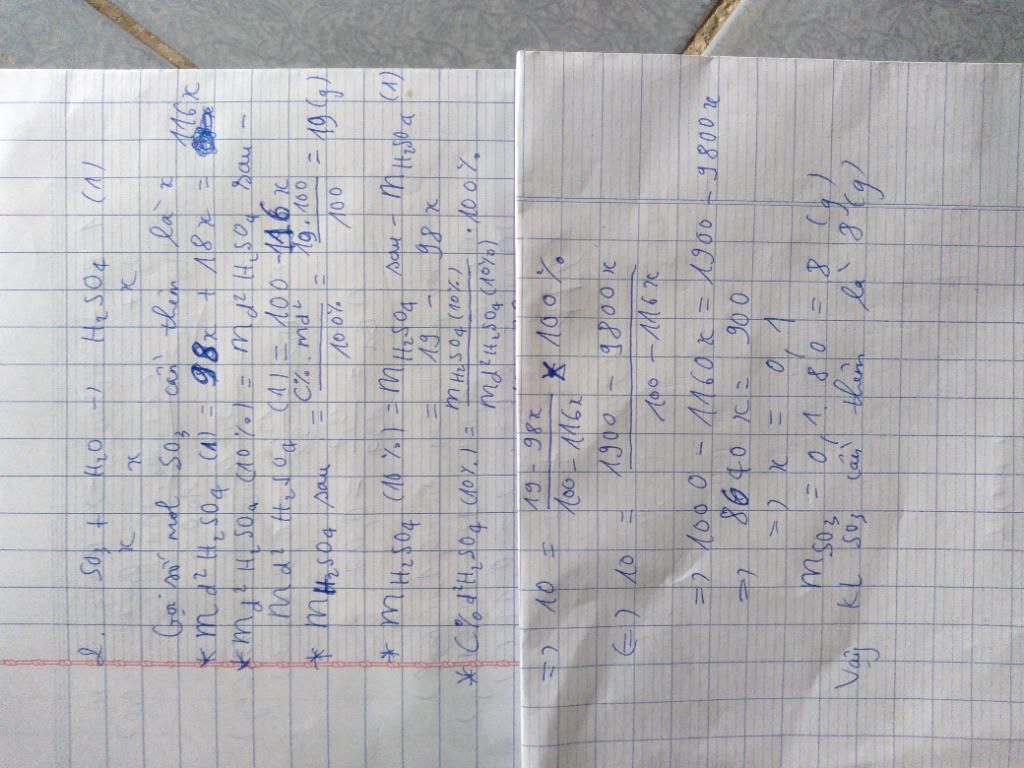 2. SO3 + H2O -> H2SO4 (1)
x x x
Gọi số mol SO3 cần thêm là x
* md² H2SO4 (1) = 98x + 18x = 116x
* md² H2SO4 (10%) = md² H2SO4 sau -
md² H2SO4 (1) = 100 - 116x
* mH2SO4 sau = C% . md² / 100% = 19 . 100 / 100 = 19 (g)
* mH2SO4 (10%) = mH2SO4 sau - mH2SO4 (1)
= 19 - 98x
* C% d² H2SO4 (10%) = mH2SO4 (10%) / md² H2SO4 (10%) . 100%
=> 10 = 19 - 98x / 100 - 116x x 100%
<=> 10 = 1900 - 9800x / 100 - 116x
=> 1000 - 1160x = 1900 - 9800x
=> 8640x = 900
=> x = 0,1
mSO3 = 0,1 . 80 = 8 (g)
Vậy KL SO3 cần thêm là 8 (g)